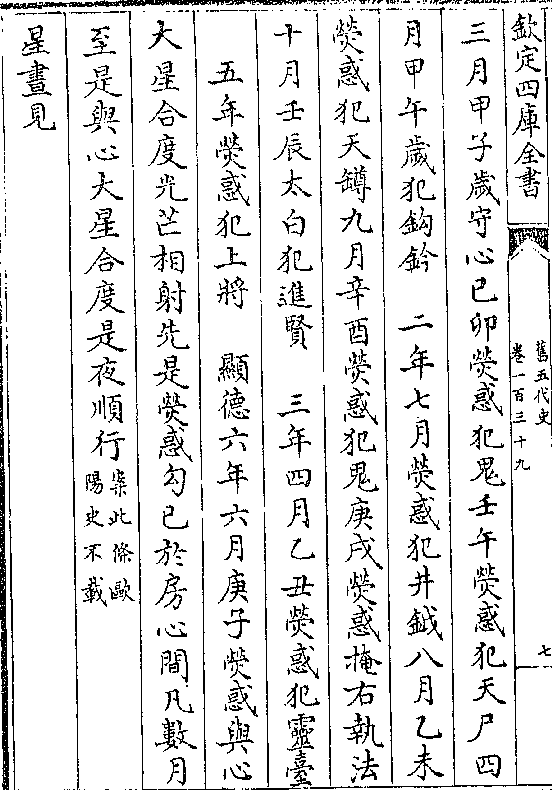 欽定四庫全書
舊五代史
卷一百三十九
七
三月甲子歲守心已卯熒惑犯鬼壬午熒惑犯天尸四
月甲午歲犯鈎鈐　二年七月熒惑犯井鉞八月乙未
熒惑犯天罇九月辛酉熒惑犯鬼庚戌熒惑掩右執法
十月壬辰太白犯進賢　三年四月乙丑熒惑犯靈臺
五年熒惑犯上將　顯德六年六月庚子熒惑與心
大星合度光芒相射先是熒惑勾已於房心間凡數月
至是與心大星合度是夜順行
案此條歐
陽史不載
星晝見